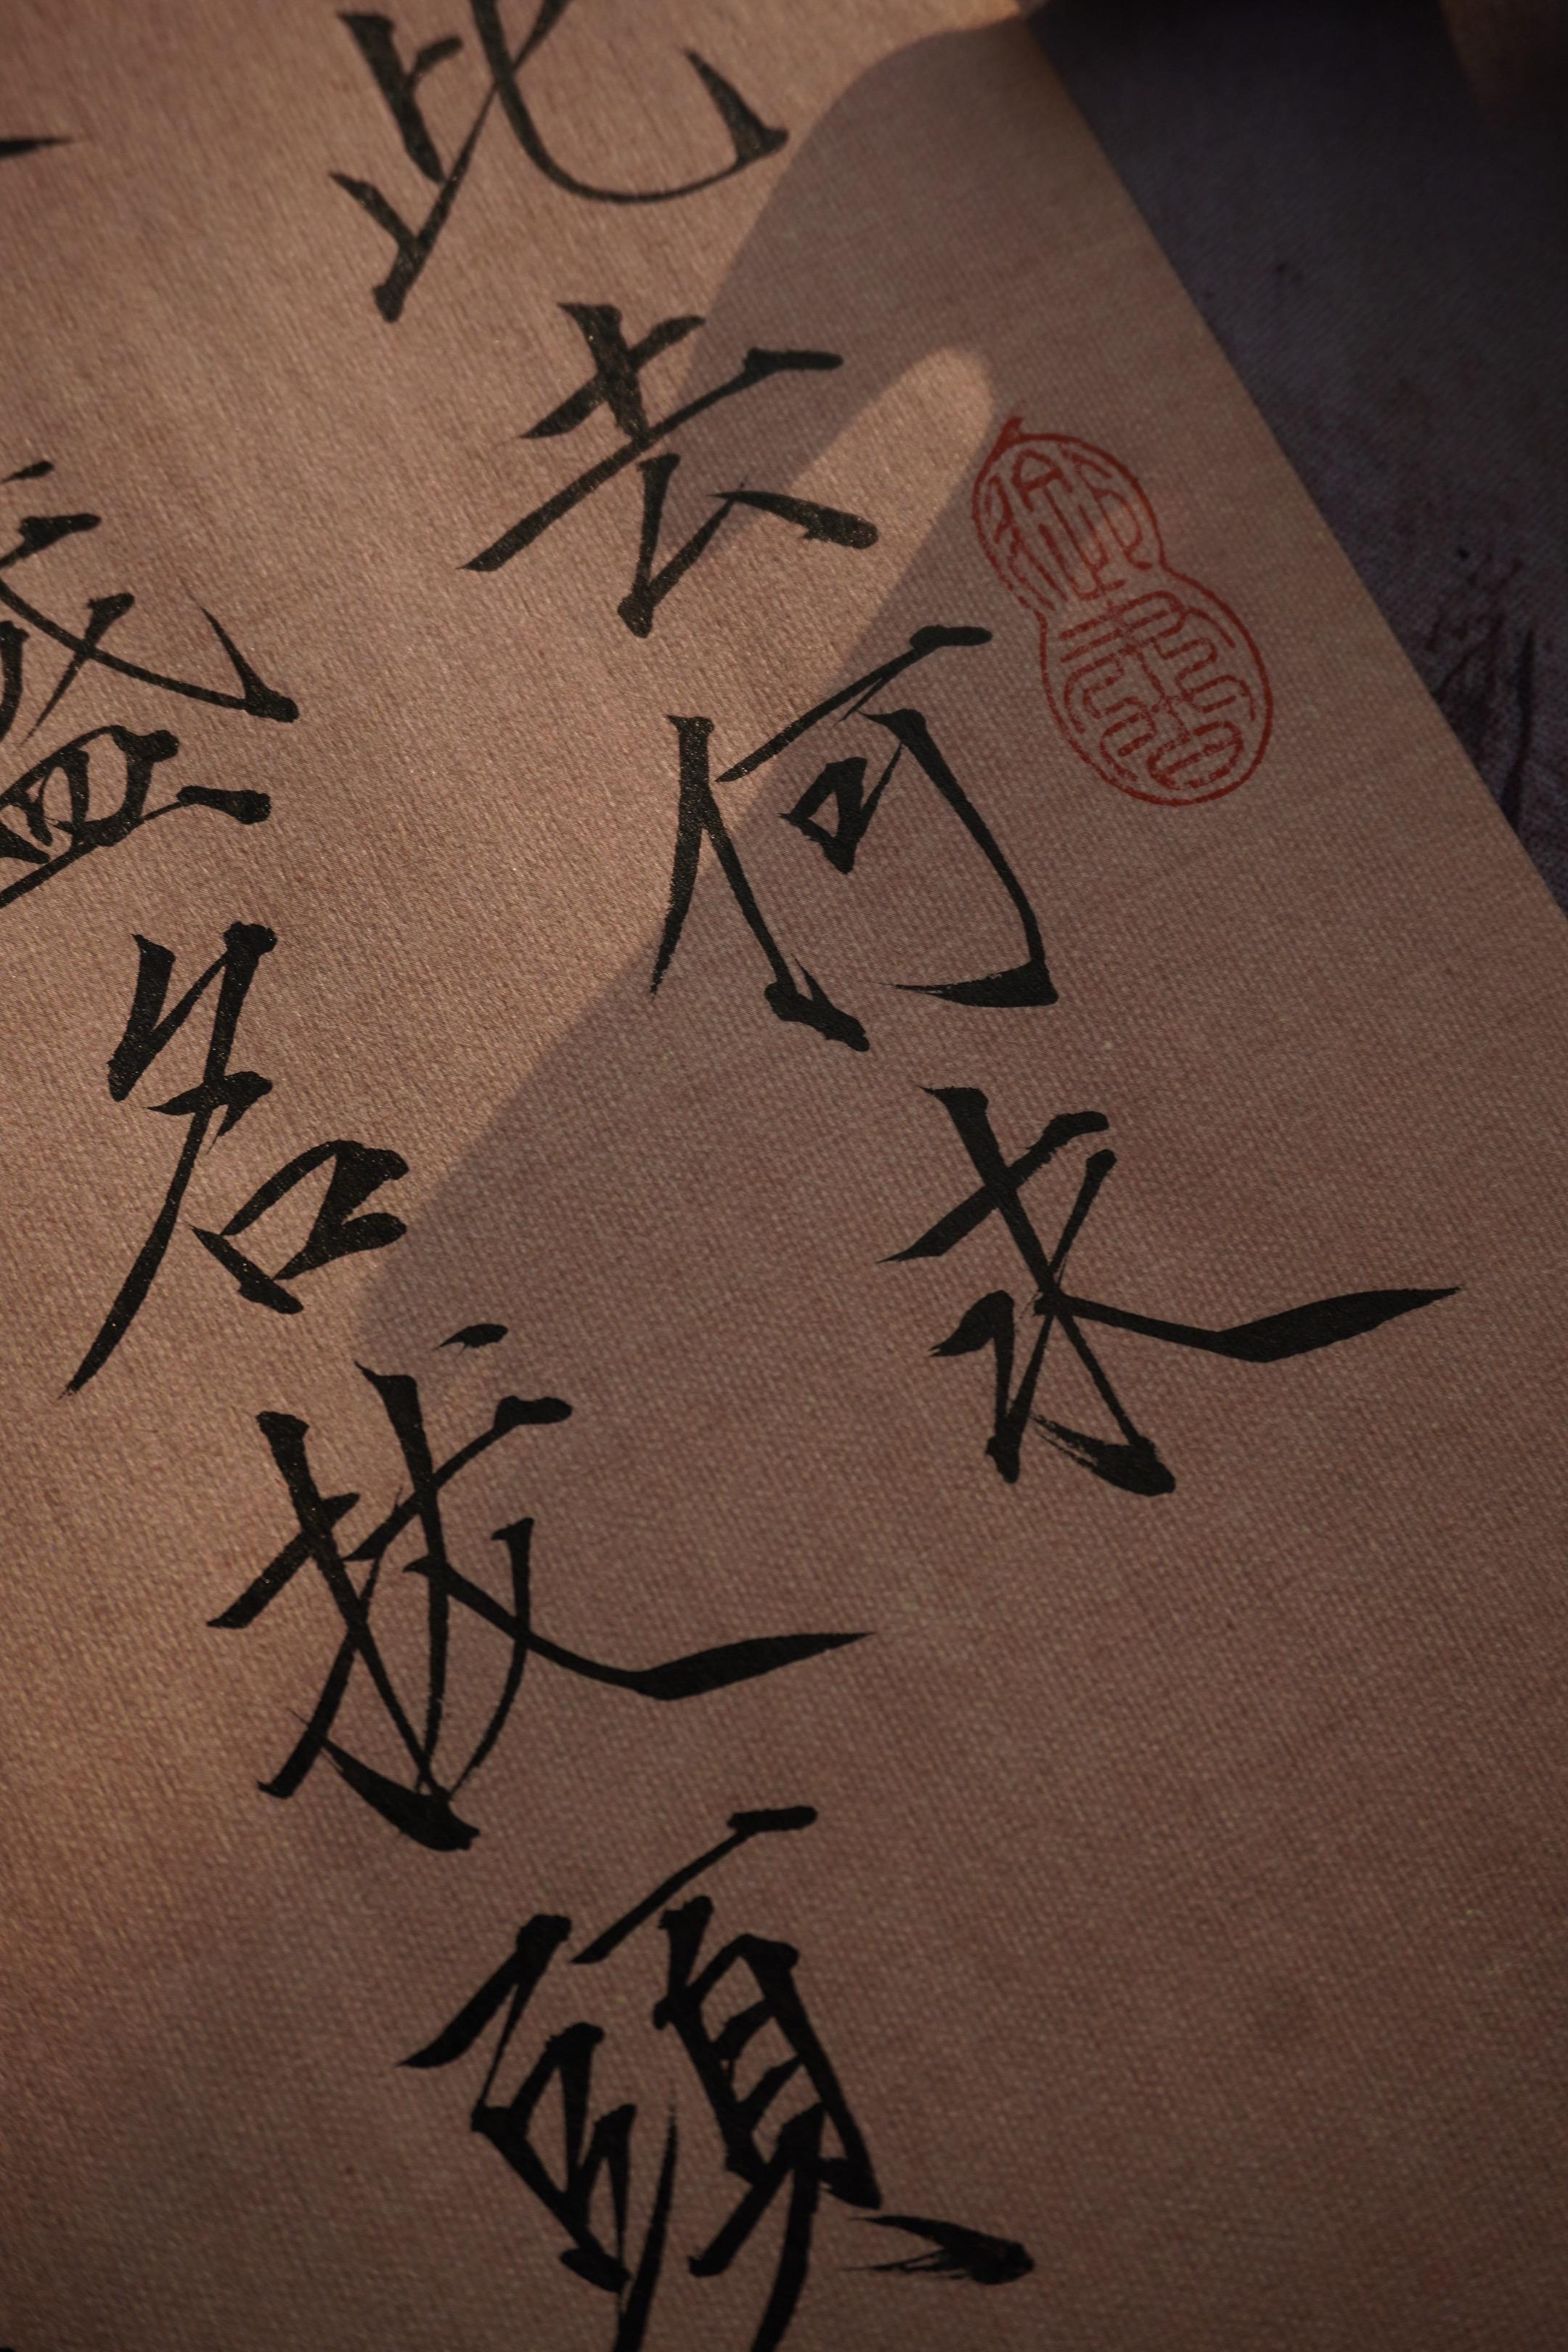 此去何求
盛名拔頭